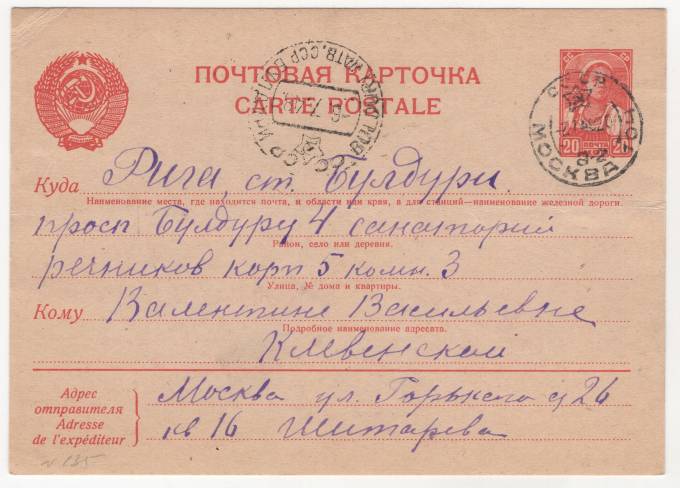 ПОЧТОВАЯ КАРТОЧКА
CARTE POSTALE
20 ПОЧТА 20
МОСКВА
Куда Рига, ст. Булдури.
Наименование места, где находится почта, и области или края, а для станций—наименование железной дороги.
просп Булдуру 4 санаторий
Район, село или деревня.
речников корп 5 комн. 3
Улица, № дома и квартиры.
Кому Валентине Васильевне
Подробное наименование адресата.
Клевенской
Адрес отправителя
Adresse de l'expéditeur
Москва ул. Горького д 26
кв 16 Шитарева
N 135